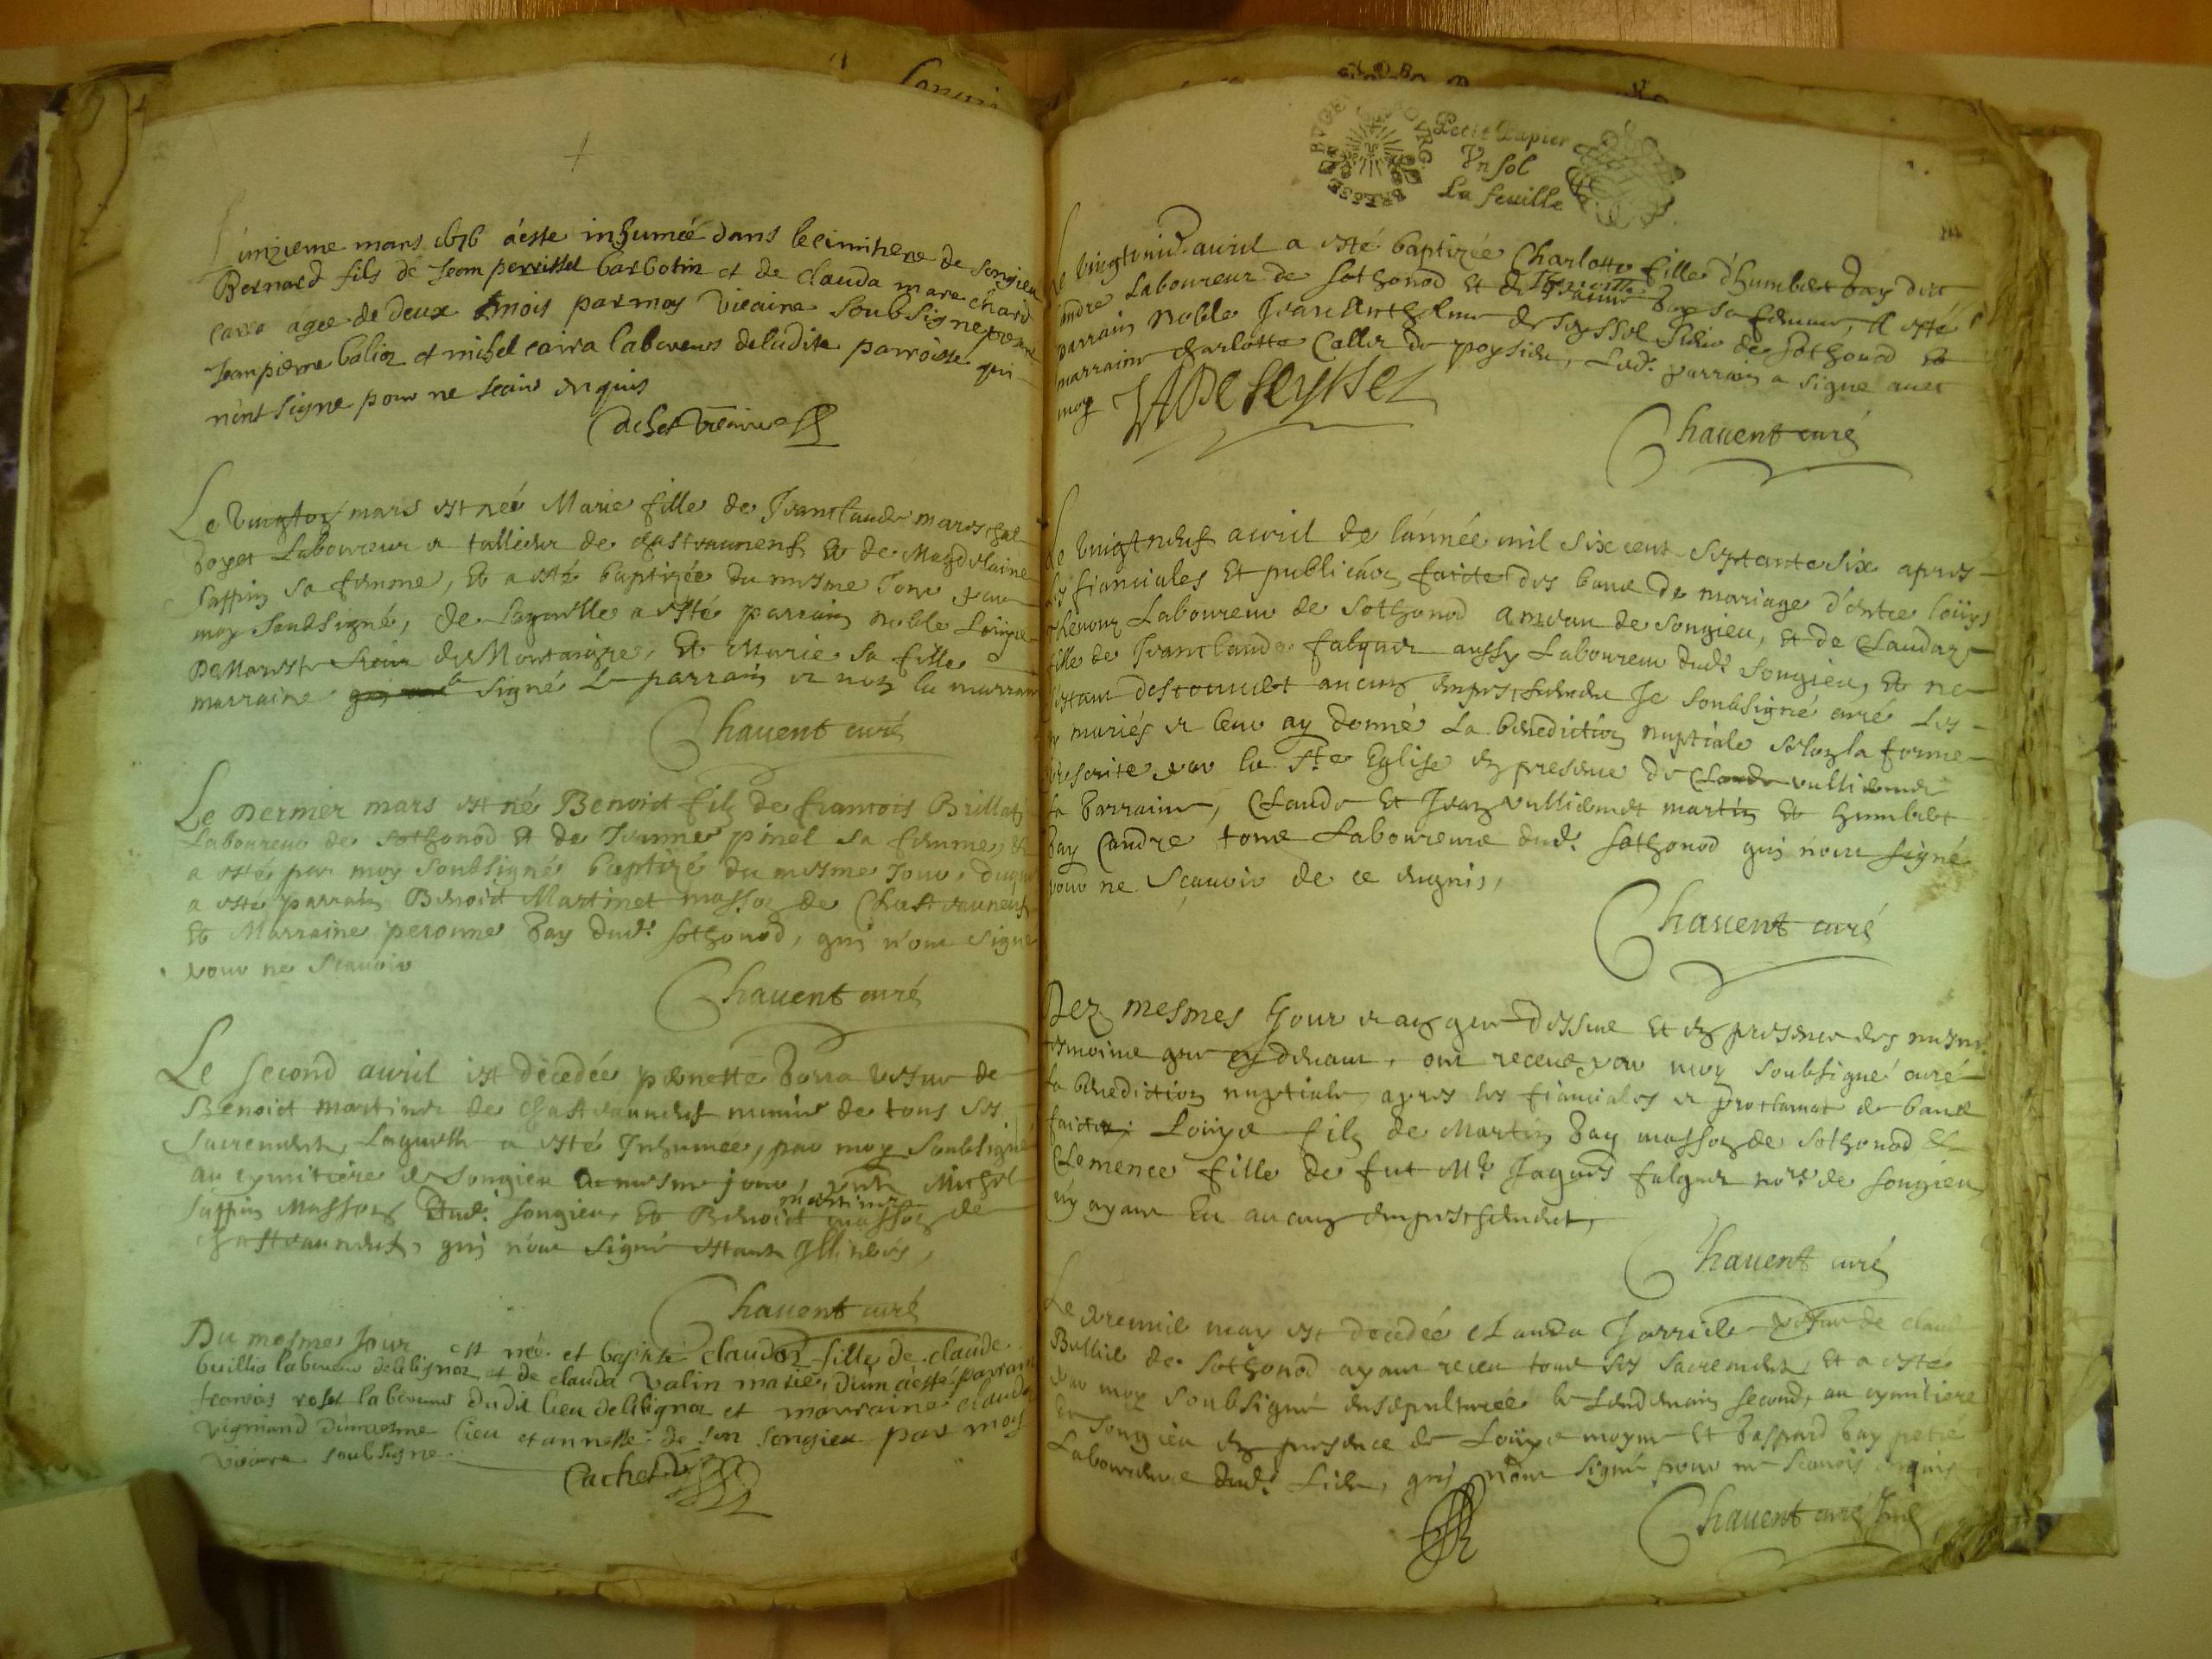 L'unzieme mars 1676 a esté inhumeé dans le cimitiere de songieu
Bernard fils de Jean perrissel barbotin et de clauda mare chard
carra agee de deux mois par moy vicaire soubsigne present
Jean pierre balioz et michel carra laboureurs de ladite parroisse qui
n'ont signe pour ne scavoir enquis
Cachet vicaire
Le vingtoz mars est neé Marie fille de Jeanclaude mareschal
boyet Laboureur et tallieur de chasteauneuf et de Magdelaine
sappin sa femme, et a esté baptizée du mesme jour par
moy soubsigné, de laquelle a esté parrain noble Loüys
De Marest sieur des Montaignes, Et Marie sa fille
marraine a signé le parrain et non la marraine
Chauent curé
Le Dernier mars est né Benoict filz de francois Brillat
Laboureur de sothonod et de Jeanne pinel sa femme, et
a esté par moy soubsigné baptizé du mesme Jour, duquel
a esté parrain Benoict Martinet masson de Chasteauneuf
Et Marraine peronne bay dud. sothonod, qui n'ont signé
pour ne scavoir
Chauent curé
Le second avril est decedée pernette borra vesve de
Benoict martinet de chasteauneuf munie de tous ses
sacrements, laquelle a esté Inhumee, par moy soubsigné
au cymitiere de songieu le mesme jour, Michel
sappin Masson dud. songieu, Et Benoict martinet masson de
chasteauneuf, qui n'ont signé estants Illiterés,
Chauent curé
Du mesme jour est neé et baptisé claudaz fille de claude
buillio laboureur delilignoz et de clauda valin mariés, d'un a esté parrain
francois roset laboureur dudit lieu delilignoz et marraine clauda
vigniand dumesme lieu et annesse de son songieu par moy
vicaire soubsigne.
Cachet v
Petit Papier
Vn sol
La feuille
Le vingtnid. avril a esté baptizée Charlotte fille d'humbert bay dict
andre Laboureur de sothonod et de bay sa femme, a esté
parrain Noble Jean Anthelme de seyssel sieur de sothonod et
marraine charlotte Callet de poysieu, Led. parrain a signé avec
moy JADESeyssel
Chauent curé
Le vingtneuf avril de l'année mil six cent septante six apres
les fianciales Et publicaon faicte des bans de mariage d'entre loüys
thevenoz Laboureur de sothonod ameau de songieu, et de Claudaz
fille de Jeanclaude falquet aussy Laboureur dud. songieu, et ne
s'estant descouvert aucun empeschement Je soubsigné curé les
ay mariés et leur ay donné La benediction nuptiale selon la forme
prescrite par la Ste Eglise en presence de Claude vulliemet
la barraine, Claude et Jean vulliemet martin et humbert
bay Candre tous Laboureurs dud. sothonod qui n'ont signé
pour ne sçauoir de ce enquis,
Chauent curé
Dez mesmes Jour et an que dessus et en presence des mesmes
tesmoins que cy devant, ont receus par moy soubsigné curé
la benediction nuptiale apres les fianciales et proclamat de bans
faicts. Loüys filz de Martin bay masson de sothonod et
Clemence fille de fut Me Jaques falquet nore de songieu
n'y ayant Eu aucun empeschement,
Chauent curé
Le premier may est decedée Clauda Jarrier vesve de claude
Bullier de sothonod ayant receu tous ses sacrements et a esté
par moy soubsigné ensepulturée le lendemain second, au cymitiere
de songieu en presence de Loüys moyne Et Gaspard bay petit
Laboureurs dud. Lieu, qui n'ont signé pour ne scavoir enquis
Chauent curé